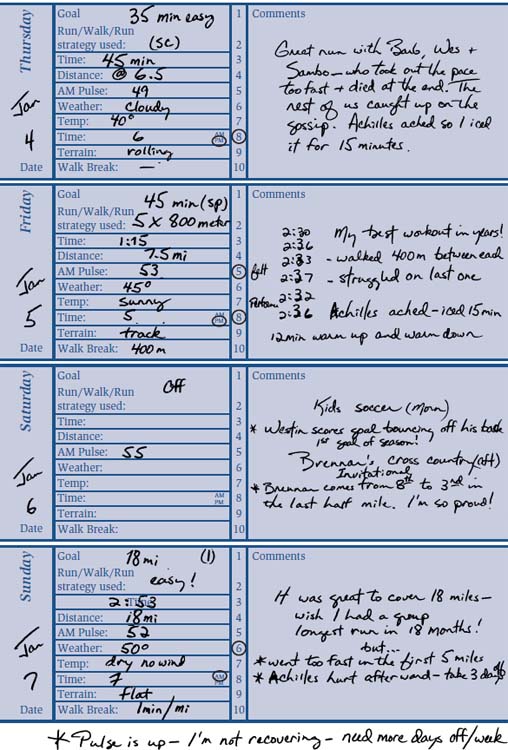 Thursday
Jan
4
Date
Goal 35 min easy
Run/Walk/Run
strategy used: (SC)
Time: 45 min
Distance: @ 6.5
AM Pulse: 49
Weather: cloudy
Temp: 40°
Time: 6 AM PM
Terrain: rolling
Walk Break: —
1
2
3
4
5
6
7
8
9
10
Comments
Great run with Barb, Wes +
Sambo - who took out the pace
too fast + died at the end. The
rest of us caught up on the
gossip. Achilles ached so I iced
it for 15 minutes.
Friday
Jan
5
Date
Goal 45 min (sp)
Run/Walk/Run
strategy used: 5 X 800 meter
Time: 1:15
Distance: 7.5 mi
AM Pulse: 53
Weather: 45°
Temp: sunny
Time: 5 AM PM
Terrain: track
Walk Break: 400 m
1
2
3
4
5
6
7
8
9
10
Comments
2:30 My best workout in years!
2:36
2:33 - walked 400m between each
felt 2:37 - struggled on last one
2:32
2:36 Achilles ached - iced 15 min
12 min warm up and warm down
Saturday
Jan
6
Date
Goal Off
Run/Walk/Run
strategy used:
Time:
Distance:
AM Pulse: 55
Weather:
Temp:
Time: AM PM
Terrain:
Walk Break:
1
2
3
4
5
6
7
8
9
10
Comments
Kids soccer (Morn)
* Westin scores goal bouncing off his back
1st goal of season!
Brennan's cross country (aft)
Invitational
* Brennan comes from 8th to 3rd in
the last half mile. I'm so proud!
Sunday
Jan
7
Date
Goal 18 mi (l)
Run/Walk/Run
strategy used: easy!
Time: 2:53
Distance: 18 mi
AM Pulse: 52
Weather: 50°
Temp: dry no wind
Time: 7 AM PM
Terrain: flat
Walk Break: 1 min/mi
1
2
3
4
5
6
7
8
9
10
Comments
It was great to cover 18 miles -
wish I had a group
longest run in 18 months!
but...
* went too fast in the first 5 miles
* Achilles hurt afterward - take 3 days off
* Pulse is up - I'm not recovering - need more days off/week